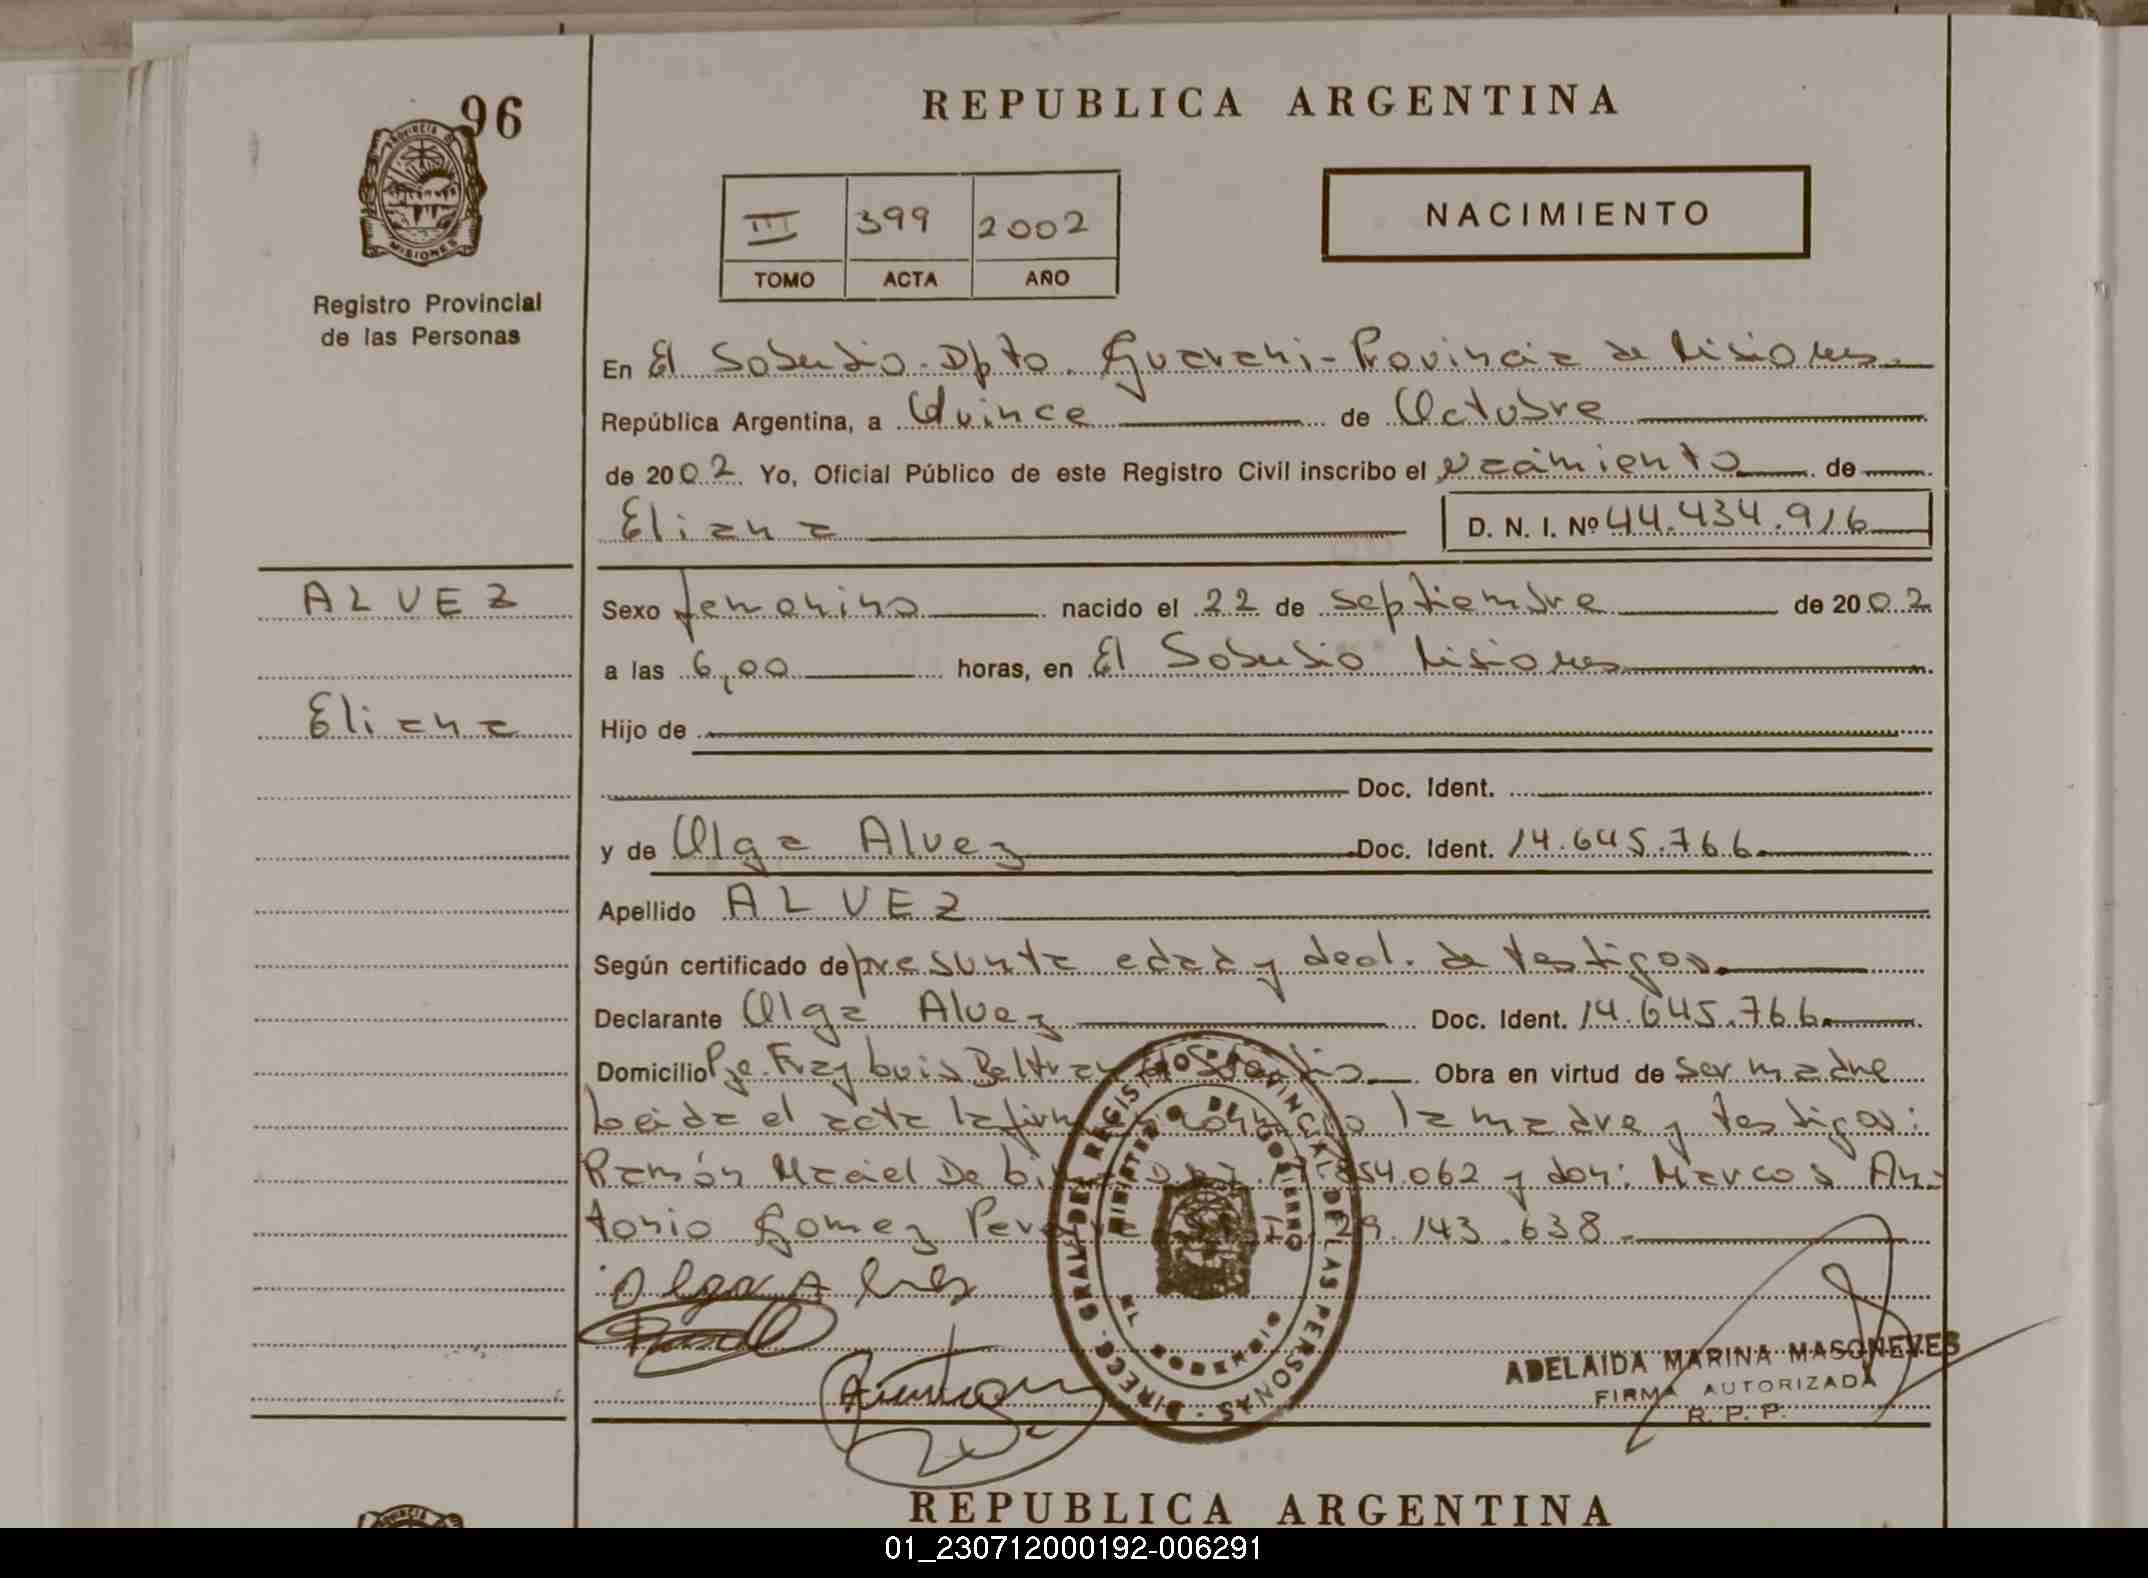 REPUBLICA ARGENTINA
96
PROVINCIA DE
MISIONES
Registro Provincial
de las Personas
III 399 2002
TOMO ACTA AÑO
NACIMIENTO
En El Soberbio. Dpto. Guarani - Provincia de Misiones.
República Argentina, a Quince de Octubre
de 2002. Yo, Oficial Público de este Registro Civil inscribo el nacimiento de
Eliana D. N. I. Nº 44.434.916
ALVEZ
Sexo femenino nacido el 22 de septiembre de 2002
a las 6,00 horas, en El Soberbio Misiones
Eliana
Hijo de
Doc. Ident.
y de Olga Alvez Doc. Ident. 14.645.766
Apellido ALVEZ
Según certificado de presunta edad y decl. de testigos.
Declarante Olga Alvez Doc. Ident. 14.645.766
Domicilio Pje. Fray Luis Beltran Obra en virtud de ser madre
Leida el acta la madre y testigos:
Ramón Maciel De 854.062 y don: Marcos An-
tonio Gomez 29.143.638
Olga Alves
DIRECC. GRAL. DEL REGISTRO PROVINCIAL DE LAS PERSONAS
MINISTERIO DE GOBIERNO
MISIONES
ADELAIDA MARINA MASONEVES
FIRMA AUTORIZADA
R. P. P.
REPUBLICA ARGENTINA
01_230712000192-006291